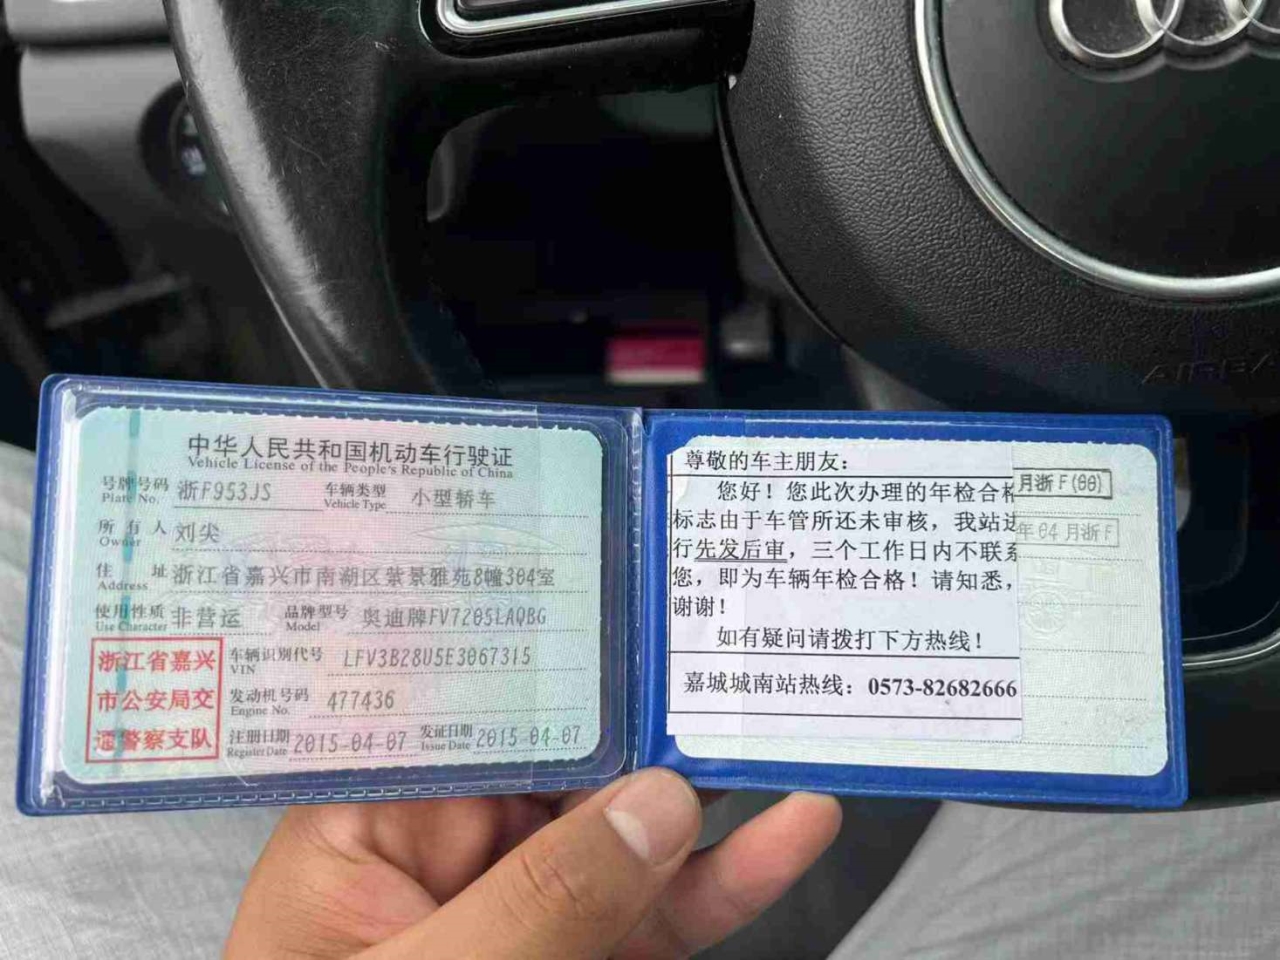 中华人民共和国机动车行驶证
Vehicle License of the People's Republic of China
号牌号码 浙F953JS 车辆类型 小型轿车
Plate No. Vehicle Type
所有人 刘尖
Owner
住址 浙江省嘉兴市南湖区紫景雅苑8幢304室
Address
使用性质 非营运 品牌型号 奥迪牌FV7205LAQBG
Use Character Model
浙江省嘉兴
市公安局交
通警察支队
车辆识别代号 LFV3B28U5E3067315
VIN
发动机号码 477436
Engine No.
注册日期 2015-04-07 发证日期 2015-04-07
Register Date Issue Date
尊敬的车主朋友:
您好!您此次办理的年检合格
标志由于车管所还未审核,我站进
行先发后审,三个工作日内不联系
您,即为车辆年检合格!请知悉,
谢谢!
如有疑问请拨打下方热线!
嘉城城南站热线:0573-82682666
月浙F(00)
年04月浙F